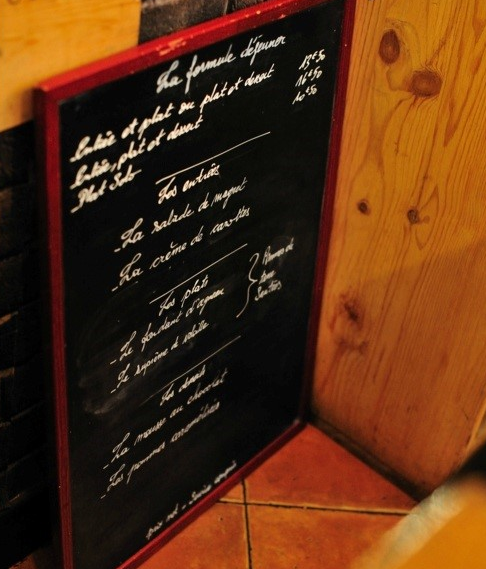 La formule déjeuner
Entrée et plat ou plat et dessert 13€50
Entrée, plat et dessert 16€50
Plat Solo 10€50
Les entrées
- La salade de magret
- La crème de carottes
Les plats
- Le fondant d'agneau
- Le suprême de volaille
Les desserts
- La mousse au chocolat
- Les pommes caramélisées
prix net - Service compris